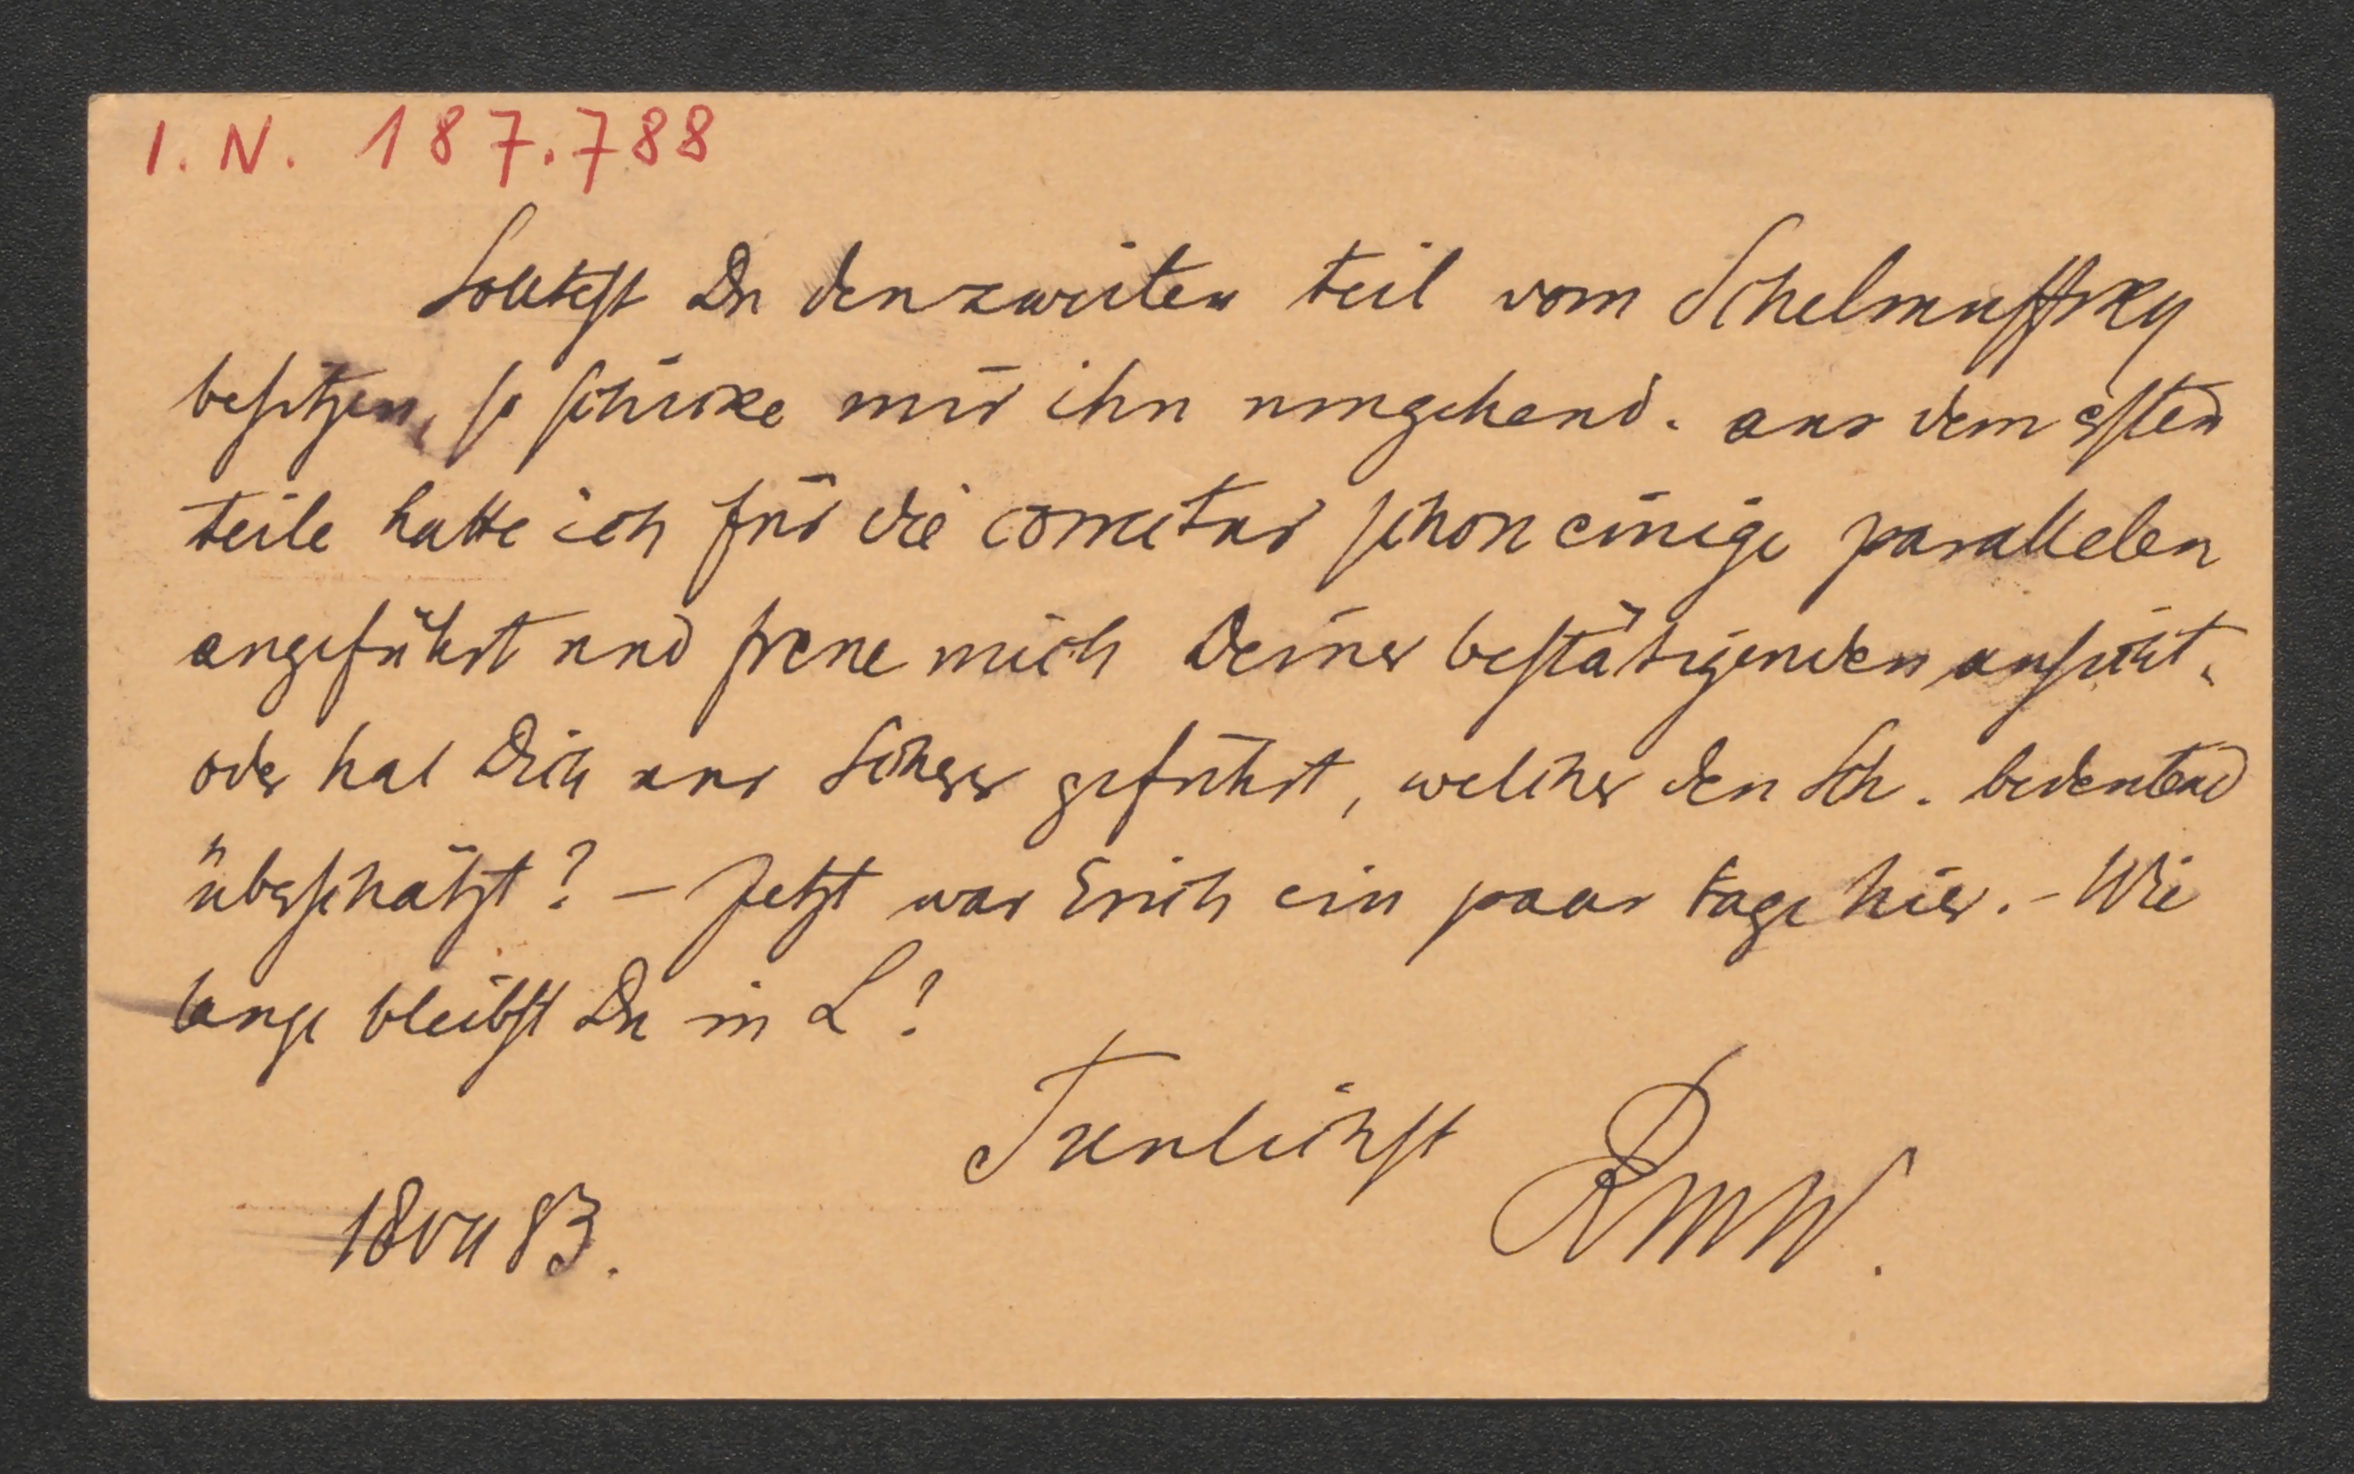 I. N. 187.788
Solltest Du den zweiten teil vom Schelmuffsky
besitzen, so schicke mir ihn umgehend. aus dem ersten
teile hatte ich für die correctur schon einige parallelen
angeführt und freue mich Deiner bestätigenden ansicht.
oder hat Dich nur Scherer geführt, welcher den Sch. bedeutend
überschätzt? – Jetzt war Erich ein paar tage hier. – Wie
lange bleibst Du in L?
Tunlichst RMW.
18 VII 83.